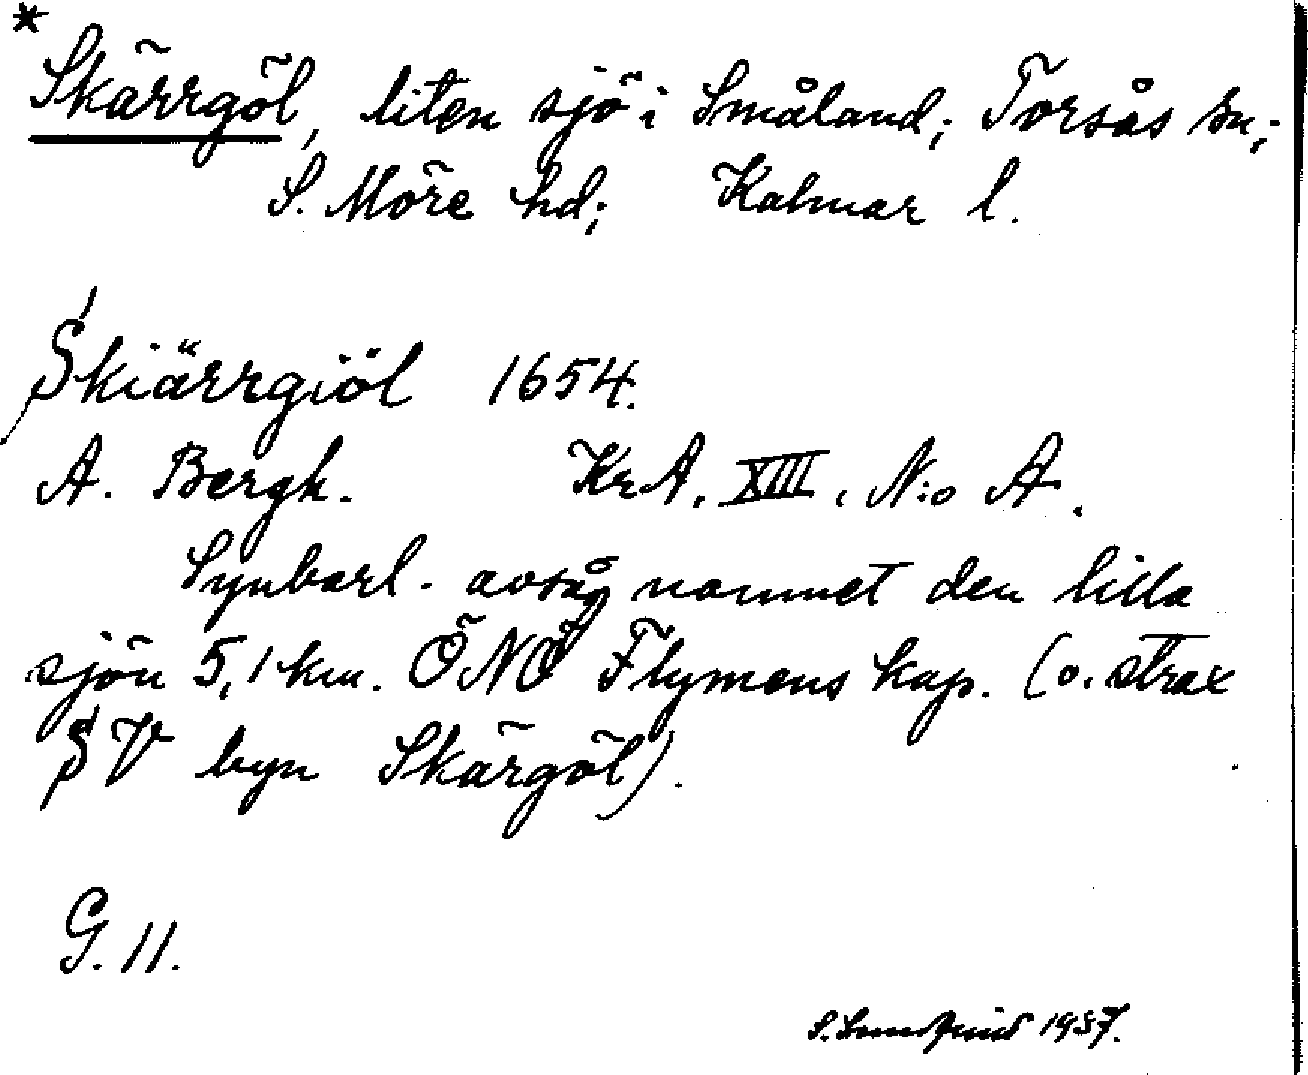 *
Skärrgöl, liten sjö i Småland; Torsås sn;
S. Möre hd; Kalmar l.
Skiärrgiöl 1654.
A. Bergh. KrA. XIII. N:o A.
Synbarl. avsåg namnet den lilla
sjön 5,1 km. ÖNÖ Flymens kap. (o. strax
SV byn Skärgöl).
G. 11.
S. 1937.